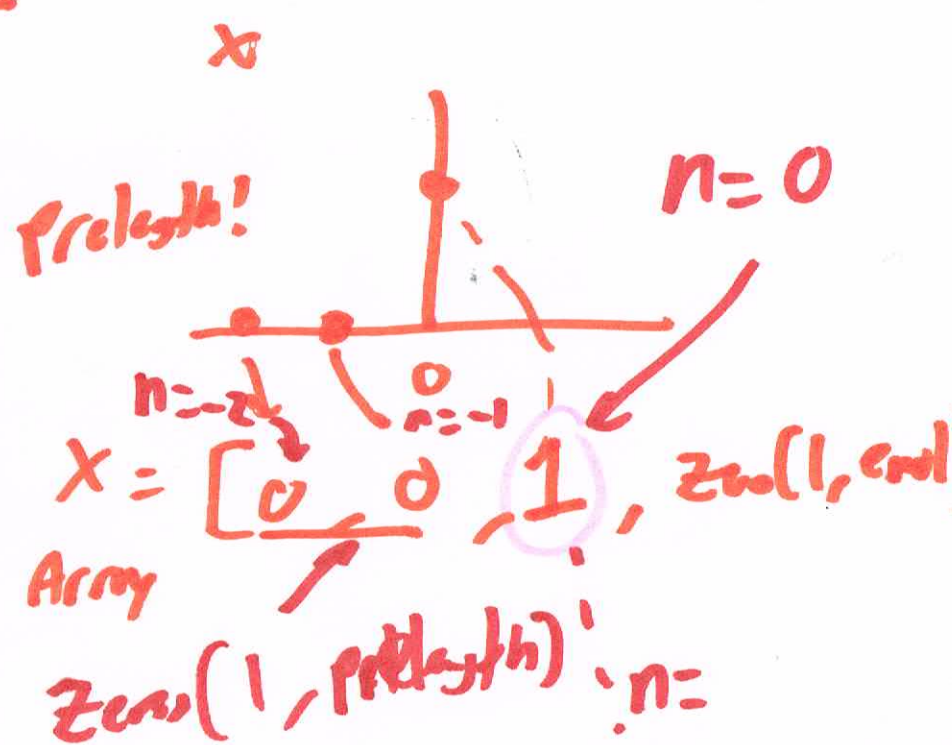 x
n=0
Prelength!
0
n=-2 n=-1
X = [0 0, 1, zeros(1, end
Array
zeros(1, prelength)
n=